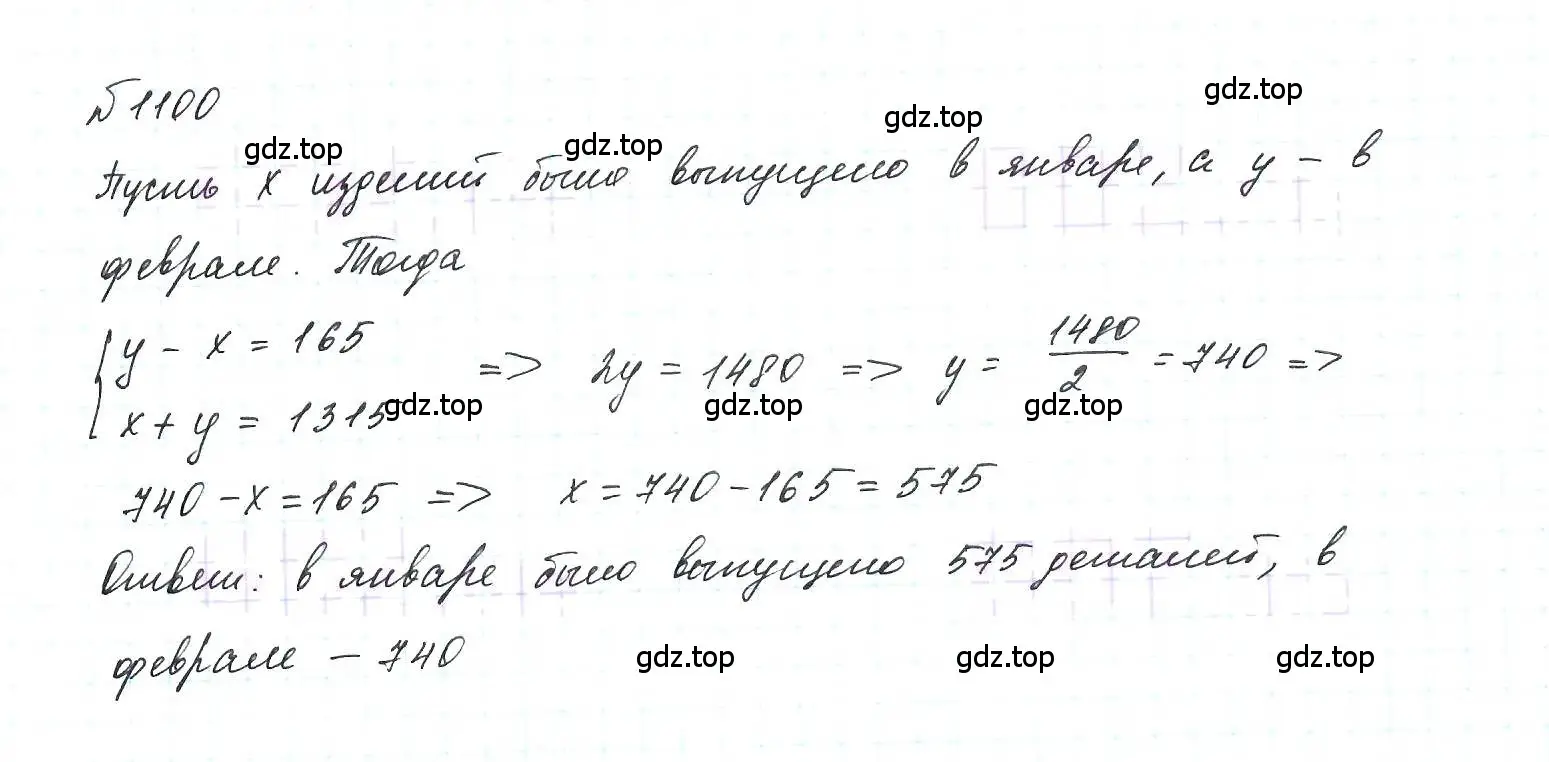 №1100
gdz.top gdz.top gdz.top gdz.top
Пусть x изделий было выпущено в январе, а y – в
феврале. Тогда
{ y - x = 165
x + y = 1315 => 2y = 1480 => y = 1480/2 = 740 =>
gdz.top gdz.top gdz.top
740 - x = 165 => x = 740 - 165 = 575
Ответ: в январе было выпущено 575 деталей, в
феврале – 740
gdz.top gdz.top gdz.top